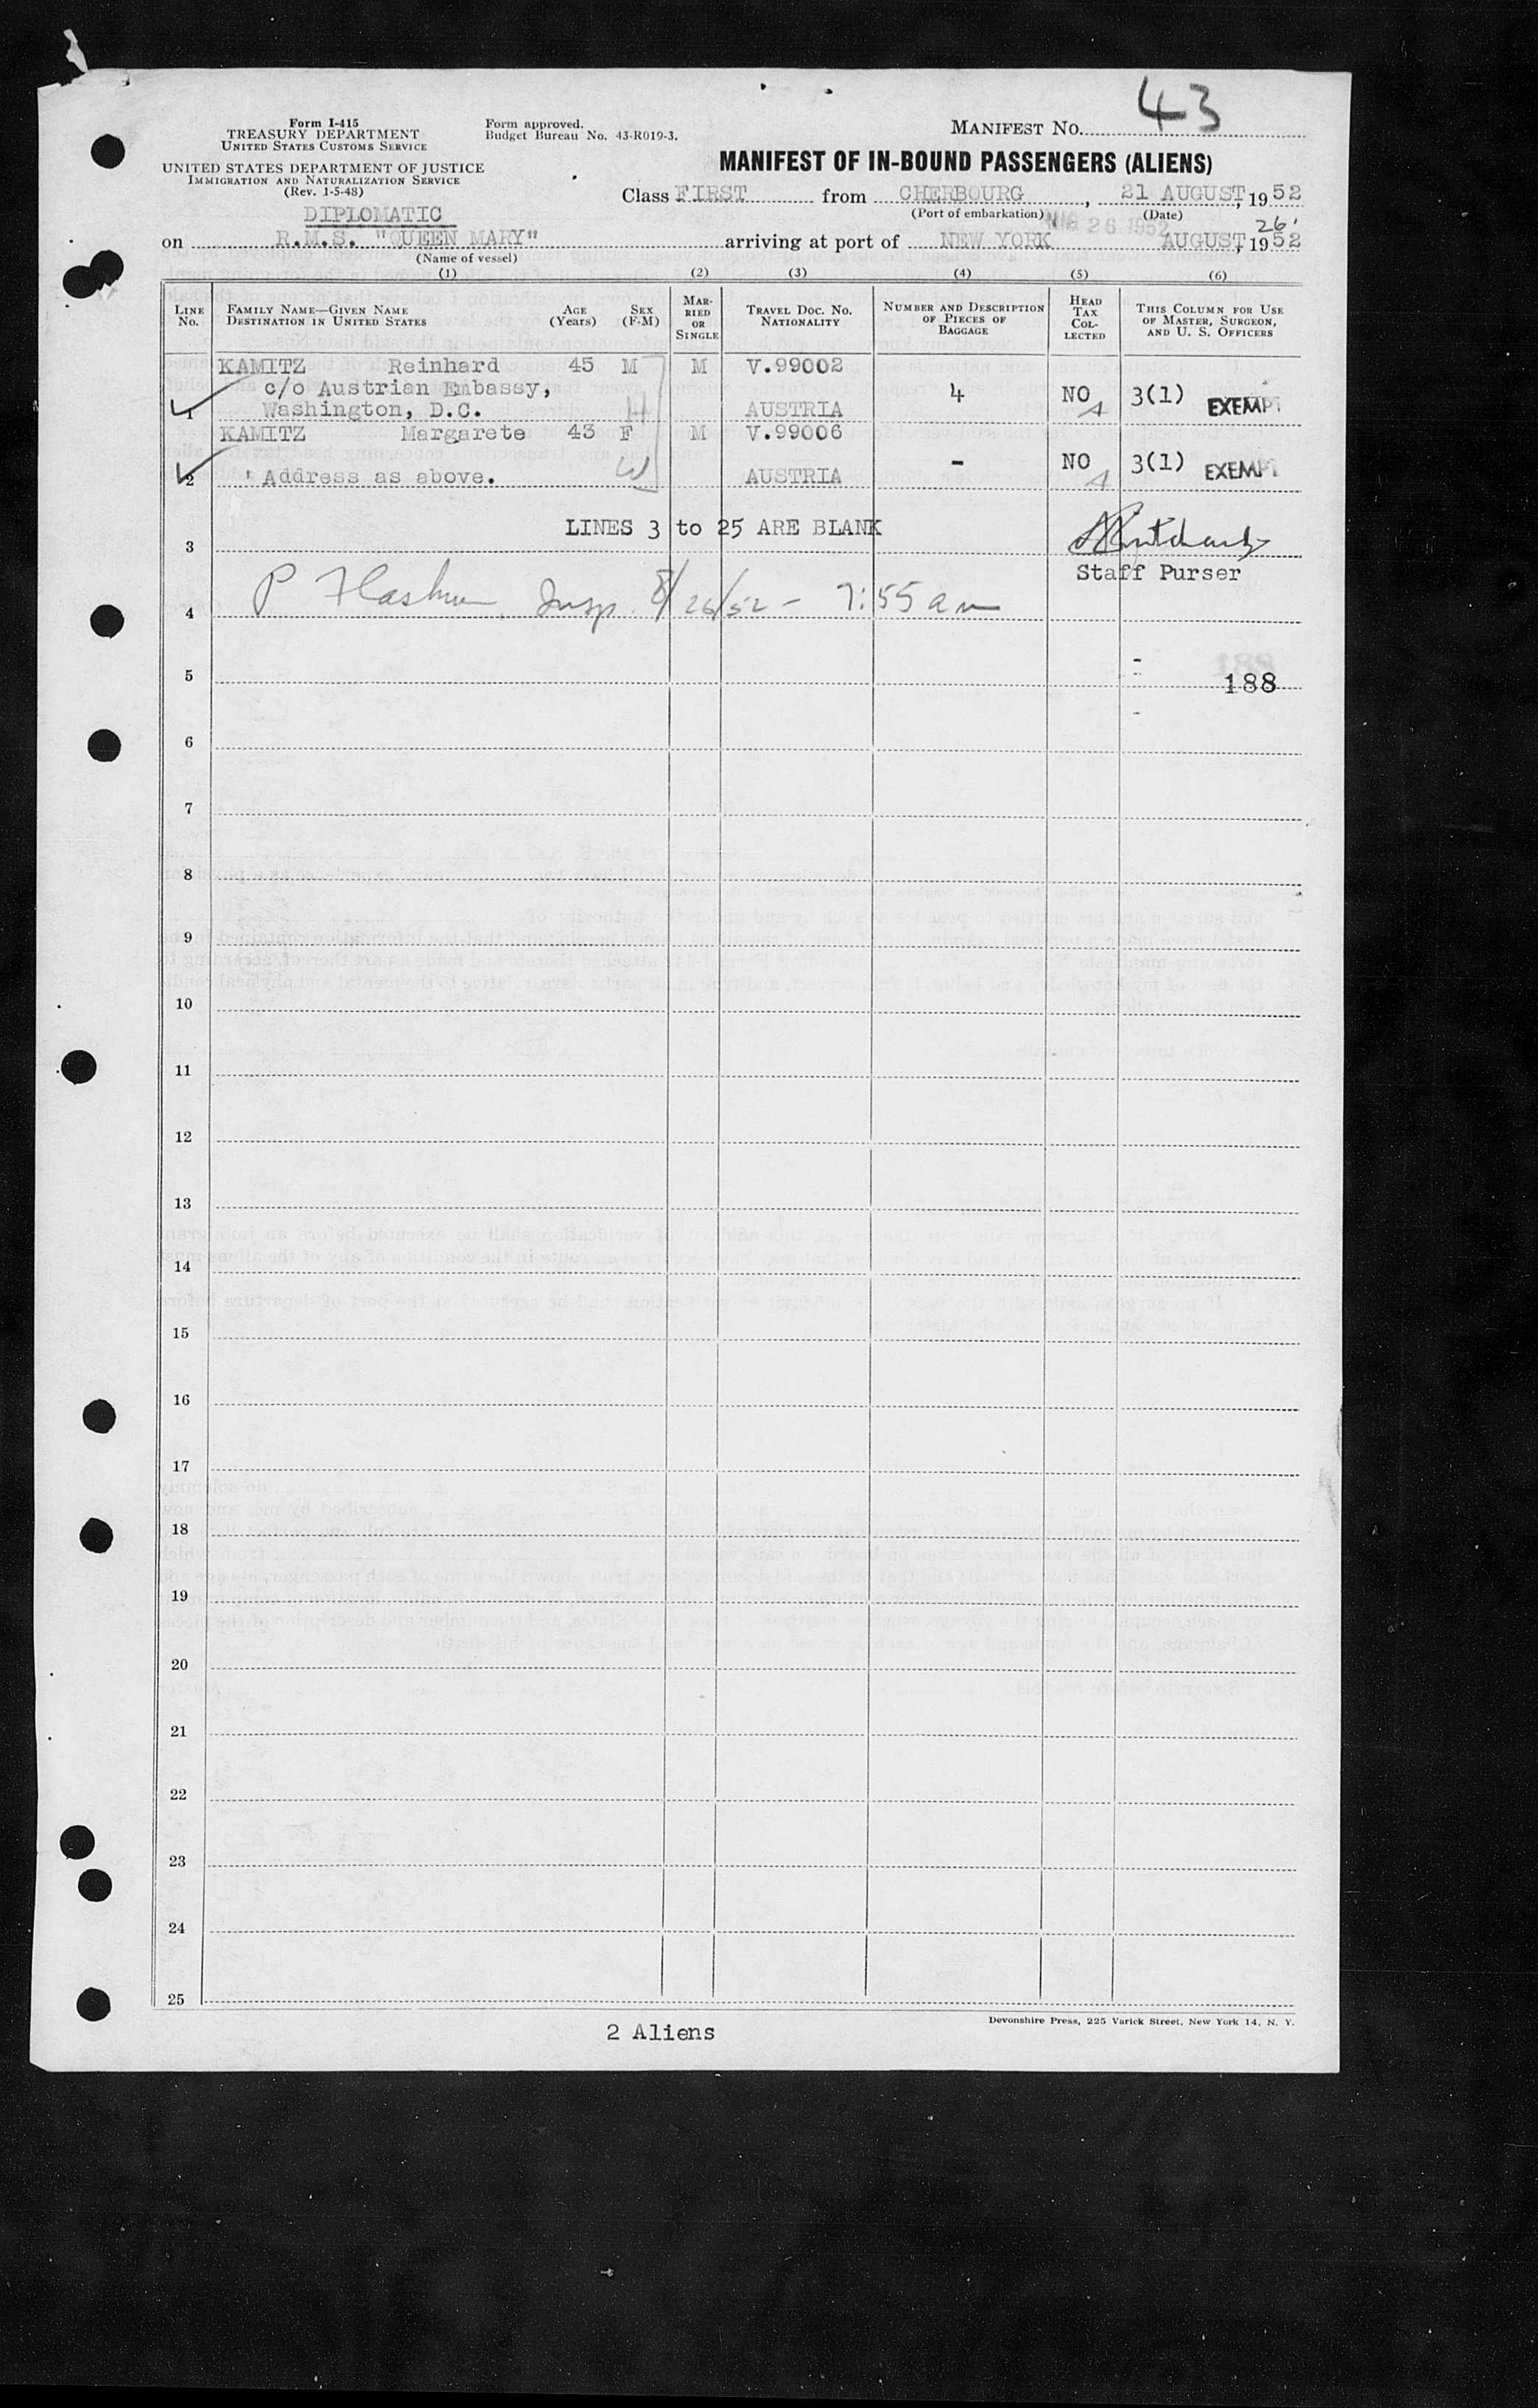 43
Form I-415
TREASURY DEPARTMENT
UNITED STATES CUSTOMS SERVICE
UNITED STATES DEPARTMENT OF JUSTICE
IMMIGRATION AND NATURALIZATION SERVICE
(Rev. 1-5-48)
Form approved.
Budget Bureau No. 43-R019-3.
MANIFEST No.
MANIFEST OF IN-BOUND PASSENGERS (ALIENS)
Class FIRST from CHERBOURG, 21 AUGUST, 1952
(Port of embarkation) (Date)
DIPLOMATIC
AUG 26 1952
26
on R.M.S. "QUEEN MARY" arriving at port of NEW YORK AUGUST, 1952
(Name of vessel)
(1) (2) (3) (4) (5) (6)
LINE No. FAMILY NAME—GIVEN NAME DESTINATION IN UNITED STATES AGE (Years) SEX (F-M) MARRIED OR SINGLE TRAVEL DOC. NO. NATIONALITY NUMBER AND DESCRIPTION OF PIECES OF BAGGAGE HEAD TAX COLLECTED THIS COLUMN FOR USE OF MASTER, SURGEON, AND U. S. OFFICERS
KAMITZ Reinhard 45 M M V.99002
c/o Austrian Embassy, 4 NO 3(1) EXEMPT
1 Washington, D.C. H AUSTRIA
KAMITZ Margarete 43 F M V.99006
- NO 3(1) EXEMPT
2 Address as above. W AUSTRIA
LINES 3 to 25 ARE BLANK
3
Staff Purser
4 P Insp. 8/26/52 - 7:55 am
188
5 188
6
7
8
9
10
11
12
13
14
15
16
17
18
19
20
21
22
23
24
25
2 Aliens
Devonshire Press, 225 Varick Street, New York 14, N. Y.